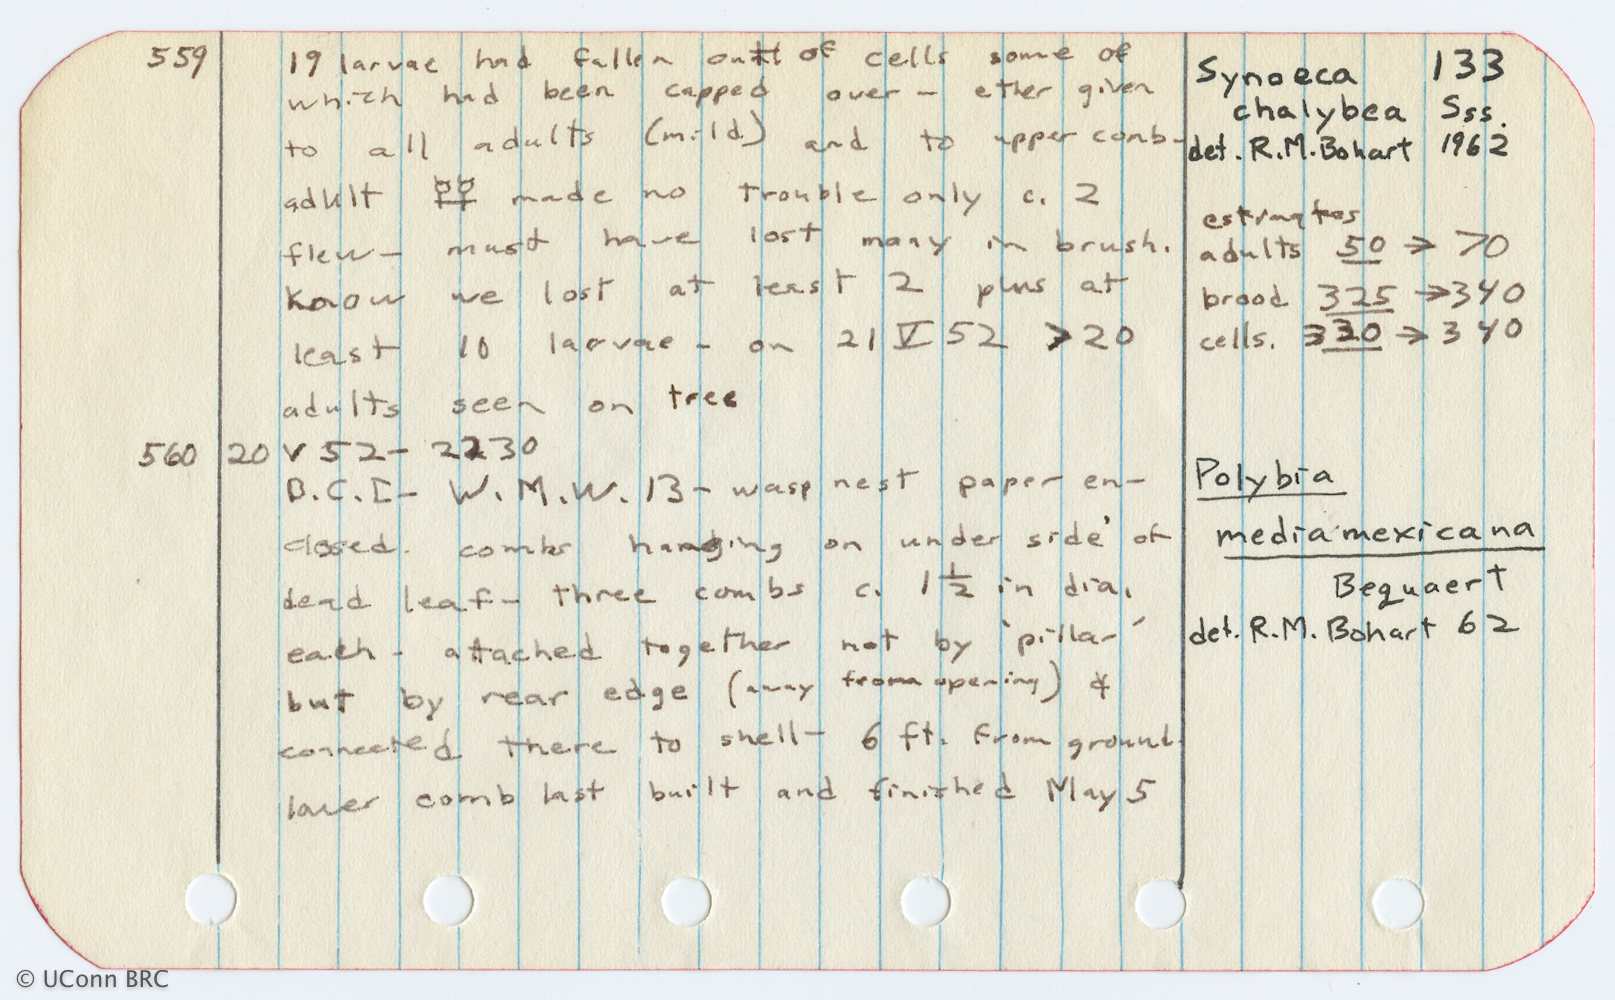 133
559 19 larvae had fallen out of cells some of
which had been capped over - ether given
to all adults (mild) and to upper comb -
adult ☿☿ made no trouble only c. 2
flew - must have lost many in brush.
Know we lost at least 2 plus at
least 10 larvae - on 21 V 52 > 20
adults seen on tree
Synoeca
chalybea Sss.
det. R.M. Bohart 1962
estimates
adults 50 → 70
brood 325 → 340
cells. 330 → 340
560 20 V 52 - 2230
B.C.I - W.M.W. 13 - wasp nest paper en-
closed. combs hanging on under side' of
dead leaf - three combs c. 1 1/2 in dia.
each - attached together not by 'pillar'
but by rear edge (away from opening) &
connected there to shell - 6 ft. from ground.
lower comb last built and finished May 5
Polybia
media mexicana
Bequaert
det. R.M. Bohart 62
© UConn BRC